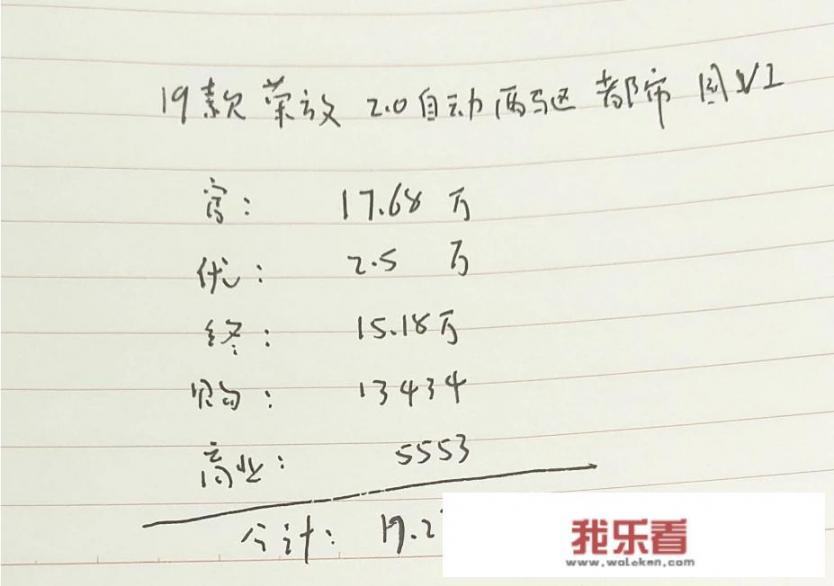 19款荣放 2.0自动两驱 都市 国VI
官: 17.68 万
优: 2.5 万
终: 15.18万
购: 13434
商业: 5553
合计: 17.2
我乐看
www.woleken.com